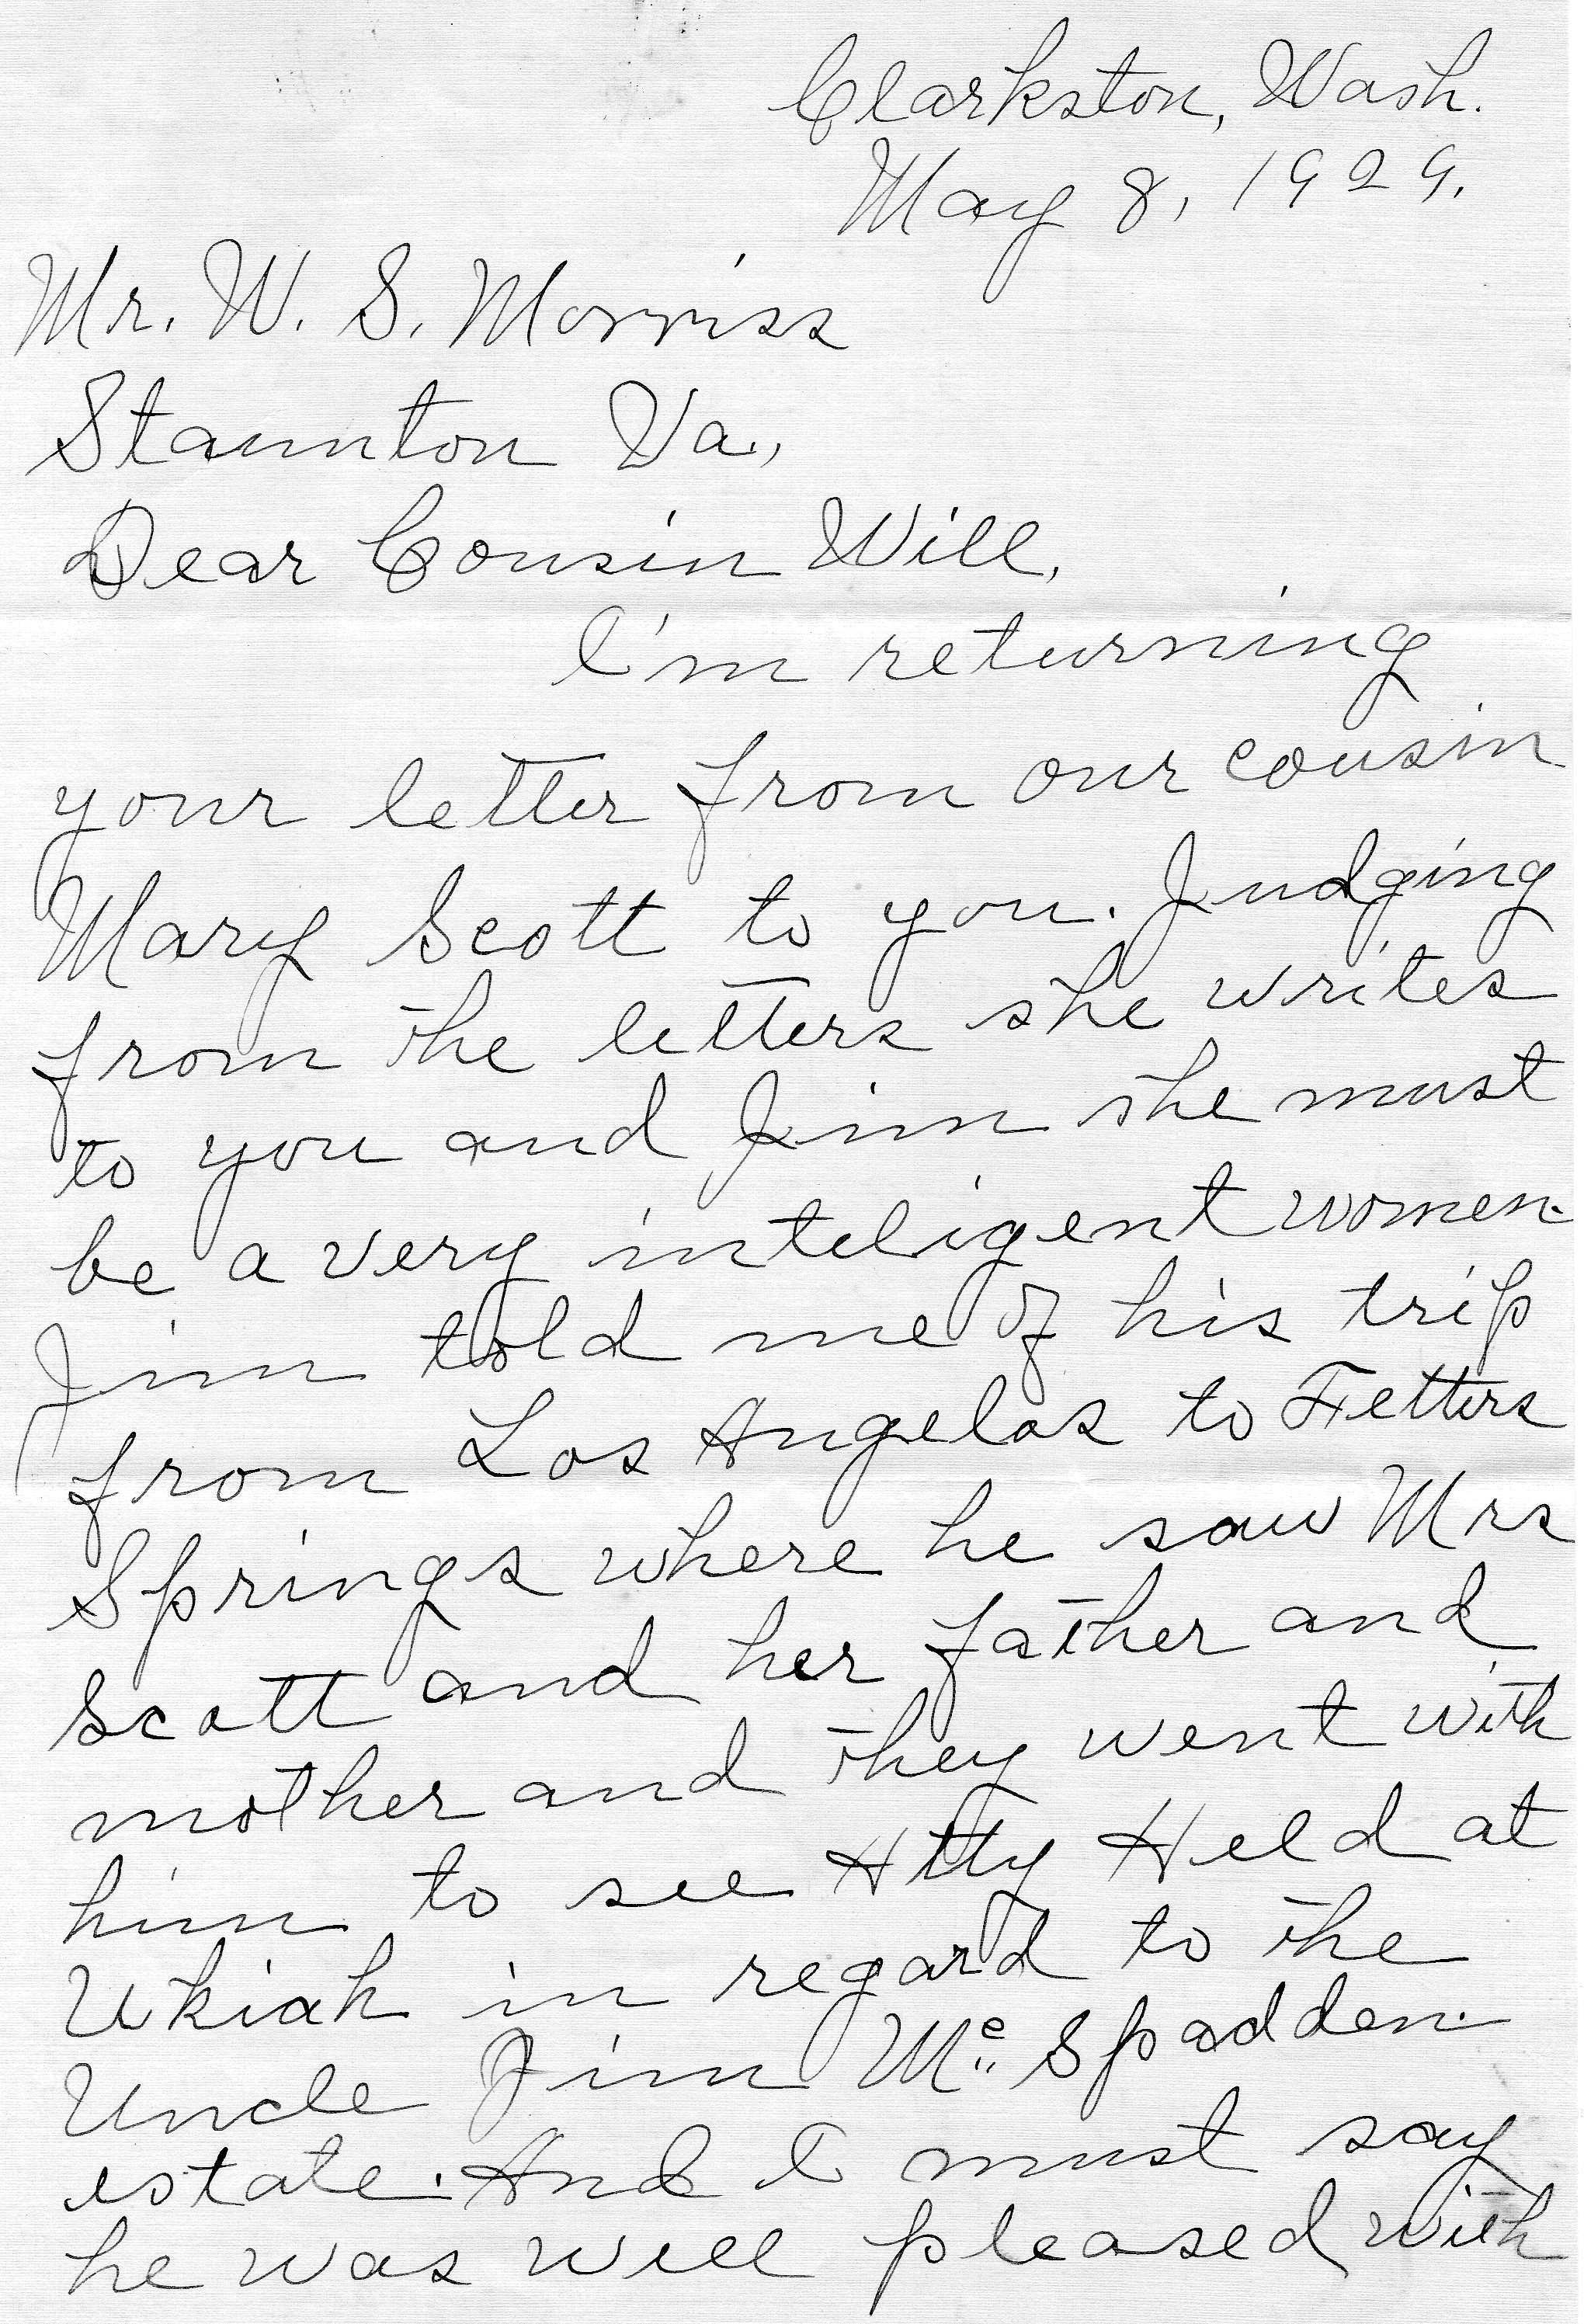 Clarkston, Wash.
May 8, 1929.
Mr. W. S. Morriss
Staunton Va.,
Dear Cousin Will,
I'm returning
your letter from our cousin
Mary Scott to you. Judging
from the letters she writes
to you and Jim she must
be a very inteligent women.
Jim told me of his trip
from Los Angelos to Fetters
Springs where he saw Mrs
Scott and her father and
mother and they went with
him to see Atty Held at
Ukiah in regard to the
Uncle Jim Mc Spadden.
estate. And I must say
he was well pleased with